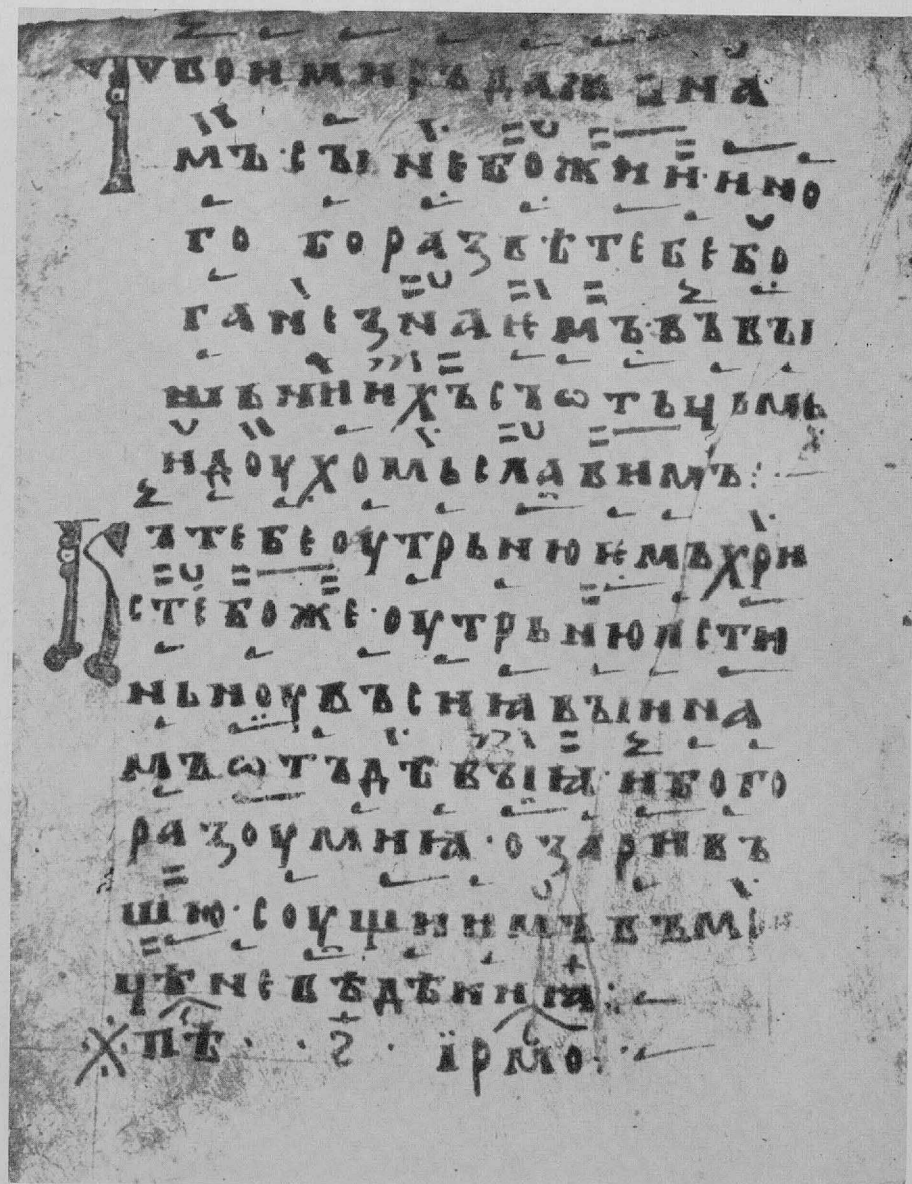 Твои миръ дажь на
мъ · сꙑне божии · и ино
го бо развѣ тебе бо
га не знаѥмъ · въ вꙑ
шьниихъ съ ѡтьцьмь
и доухомь славимъ :
Къ тебе оутрьнюѥмъ хри
сте боже · оутрьню исти
ньноу въсиꙗвꙑи на
мъ ѡтъ дѣвꙑꙗ · и бого
разоумиꙗ · озаривъ
шю · соущиимъ въ м
чѣ невѣдѣниꙗ :
пѣ · · ѕ · їрмо ·